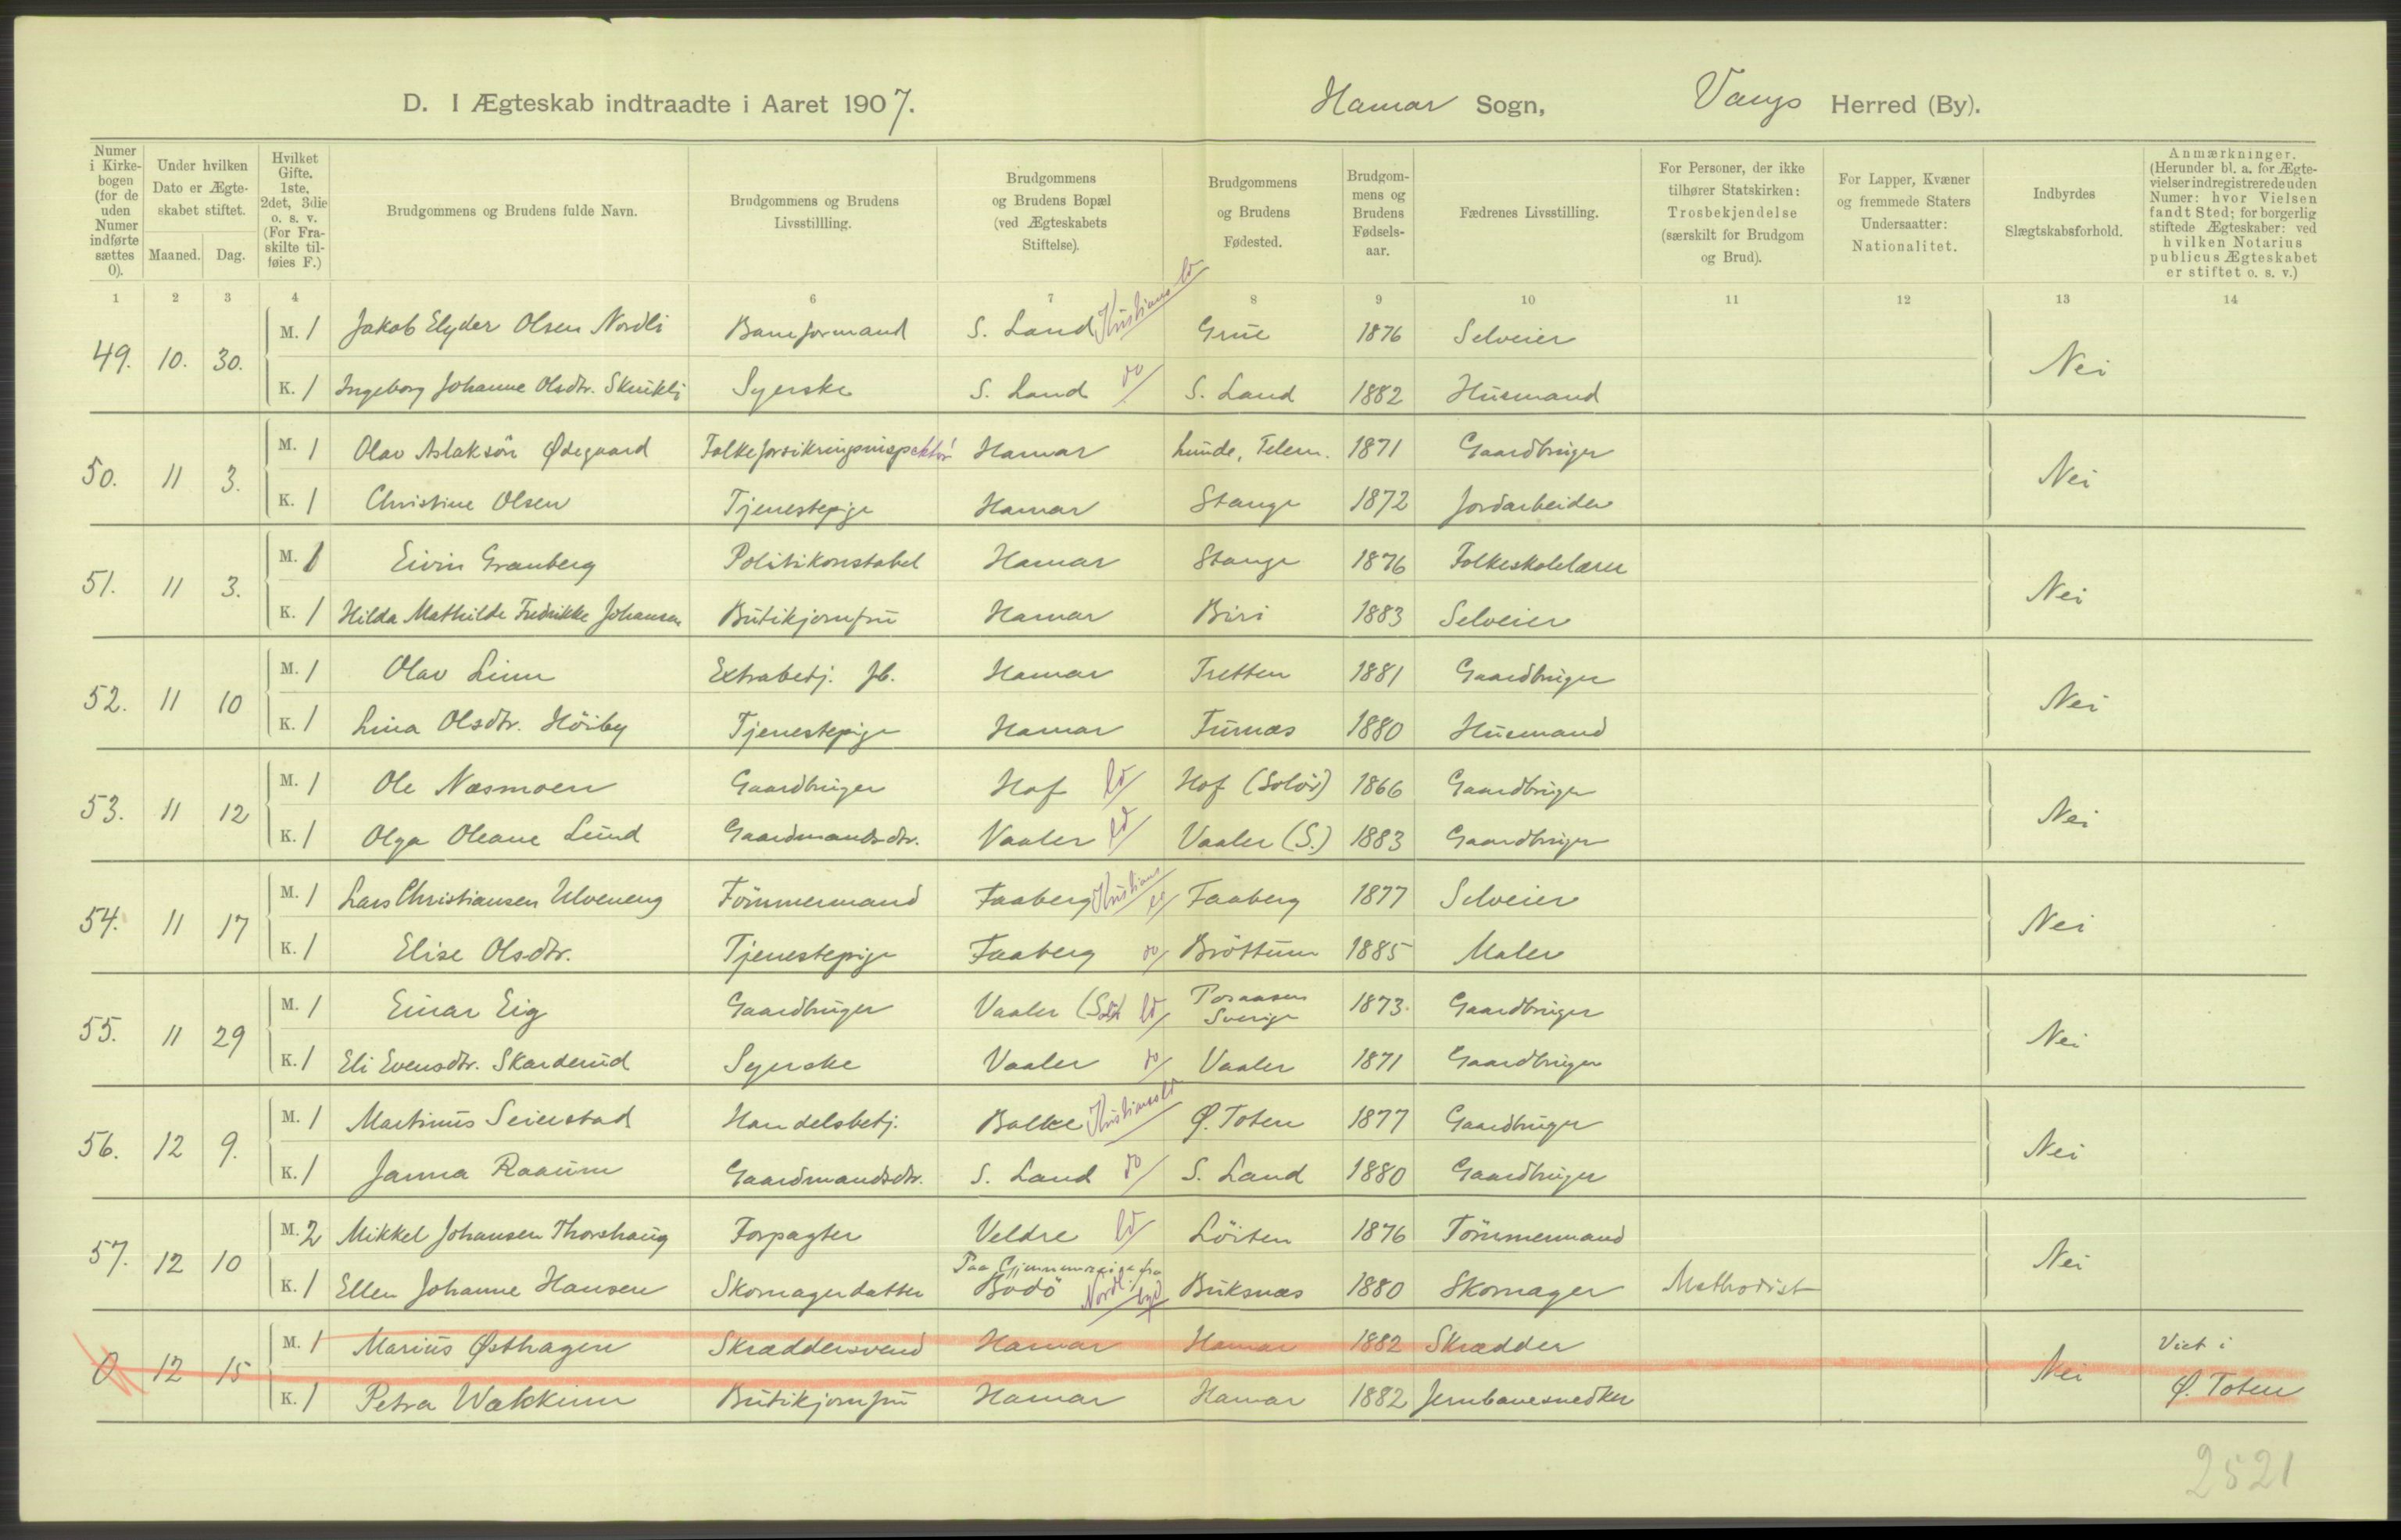 D. I Ægteskab indtraadte i Aaret 1907. Hamar Sogn, Vangs Herred (By).
Numer i Kirkebogen (for de uden Numer indførte sættes 0).
Under hvilken Dato er Ægteskabet stiftet.
Maaned. Dag.
Hvilket Gifte. 1ste, 2det, 3die o. s. v. (For Fraskilte tilføies F.)
Brudgommens og Brudens fulde Navn.
Brudgommens og Brudens Livsstillling.
Brudgommens og Brudens Bopæl (ved Ægteskabets Stiftelse).
Brudgommens og Brudens Fødested.
Brudgommens og Brudens Fødselsaar.
Fædrenes Livsstilling.
For Personer, der ikke tilhører Statskirken: Trosbekjendelse (særskilt for Brudgom og Brud).
For Lapper, Kvæner og fremmede Staters Undersaatter: Nationalitet.
Indbyrdes Slægtskabsforhold.
Anmærkninger. (Herunder bl. a. for Ægtevielser indregistrerede uden Numer: hvor Vielsen fandt Sted; for borgerlig stiftede Ægteskaber: ved hvilken Notarius publicus Ægteskabet er stiftet o. s. v.)
1 2 3 4 6 7 8 9 10 11 12 13 14
49. 10. 30. M. 1 Jakob Elyder Olsen Nordli Baneformand S. Land Kristians ld Grue 1876 Selveier Nei
K. 1 Ingeborg Johanne Olsdtr. Skrukli Syerske S. Land do S. Land 1882 Husmand
50. 11 3. M. 1 Olav Aslaksön Ødegaard Folkeforsikringsinspektör Hamar Lunde, Telem. 1871 Gaardbruger Nei
K. 1 Christine Olsen Tjenestepige Hamar Stange 1872 Jordarbeider
51. 11 3. M. 1 Eivin Granberg Politikonstabel Hamar Stange 1876 Folkeskolelærer Nei
K. 1 Hilda Mathilde Fredrikke Johansen Butikjomfru Hamar Biri 1883 Selveier
52. 11 10 M. 1 Olav Linn Extrabetj. Jb. Hamar Tretten 1881 Gaardbruger Nei
K. 1 Lina Olsdtr. Höiby Tjenestepige Hamar Furnæs 1880 Husmand
53. 11 12 M. 1 Ole Næsmoen Gaardbruger Hof ld Hof (Solör) 1866 Gaardbruger Nei
K. 1 Olga Oleane Lund Gaardmandsdtr. Vaaler ld Vaaler (S.) 1883 Gaardbruger
54. 11 17 M. 1 Lars Christiansen Ulveneng Tömmermand Faaberg Kristians ld Faaberg 1877 Selveier Nei
K. 1 Elise Olsdtr. Tjenestepige Faaberg do Bröttum 1885 Maler
55. 11 29 M. 1 Einar Eig Gaardbruger Vaaler (Sol) ld Sverige 1873. Gaardbruger Nei
K. 1 Eli Evensdtr. Skarderud Syerske Vaaler do Vaaler 1871 Gaardbruger
56. 12 9. M. 1 Martinius Seierstad Handelsbetj. Balke Kristians ld Ø. Toten 1877 Gaardbruger Nei
K. 1 Janna Raaum Gaardmandsdtr. S. Land do S. Land 1880 Gaardbruger
57. 12 10 M. 2 Mikkel Johansen Thorshaug Forpagter Veldre ld Löiten 1876 Tömmermand Nei
Paa Gjennemreise fra
K. 1 Ellen Johanne Hansen Skomagerdatter Bodö Nordl. byd Buksnæs 1880 Skomager Methodist
0 12 15 M. 1 Marius Østhagen Skræddersvend Hamar Hamar 1882 Skrædder Nei Viet i
K. 1 Petra Wakkum Butikjomfru Hamar Hamar 1882 Jernbanesnedker Ø. Toten
2521